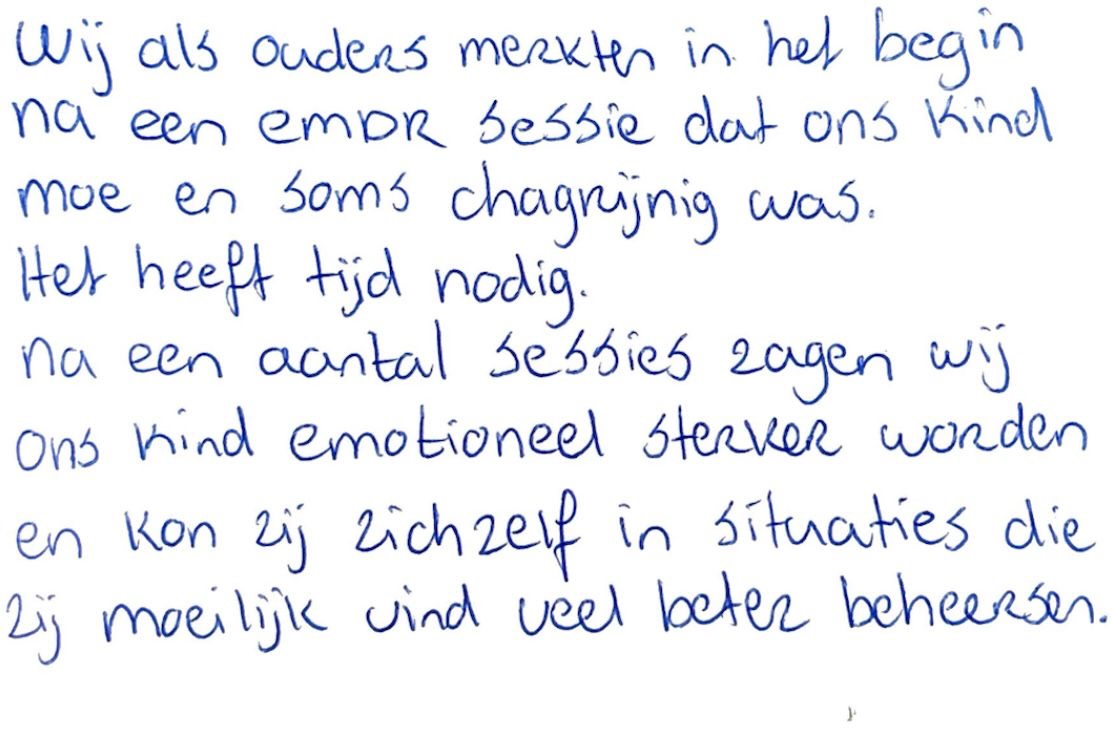 Wij als ouders merkten in het begin
na een EMDR sessie dat ons kind
moe en soms chagrijnig was.
Het heeft tijd nodig.
Na een aantal sessies zagen wij
ons kind emotioneel sterker worden
en kon zij zichzelf in situaties die
zij moeilijk vind veel beter beheersen.